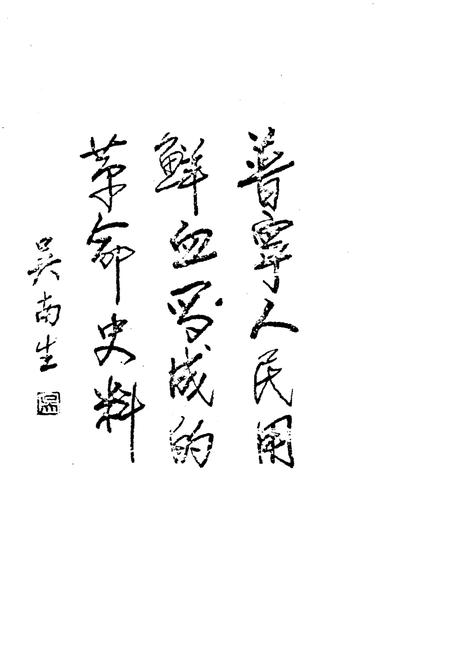 普宁人民用
鲜血写成的
革命史料
吴南生